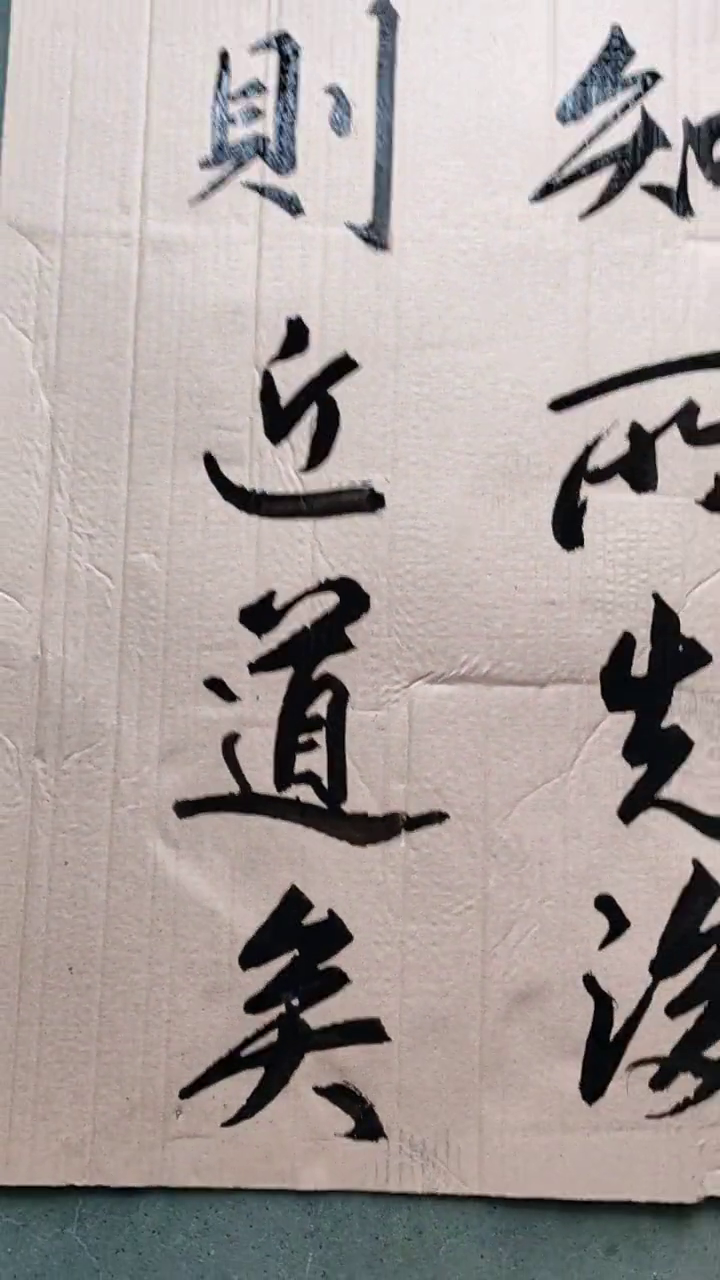 知所先後
則近道矣